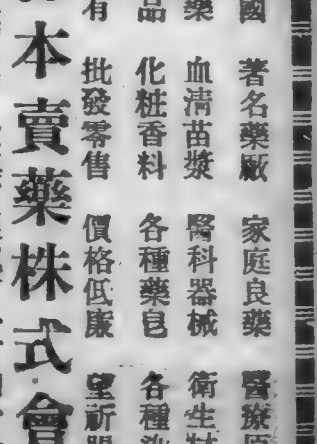 國 著名藥厰 家庭良藥 醫療
藥 血清苗漿 醫科器械 衛生
品 化粧香料 各種藥皂 各種
有 批發零售 價格低廉 望祈
本賣藥株式會